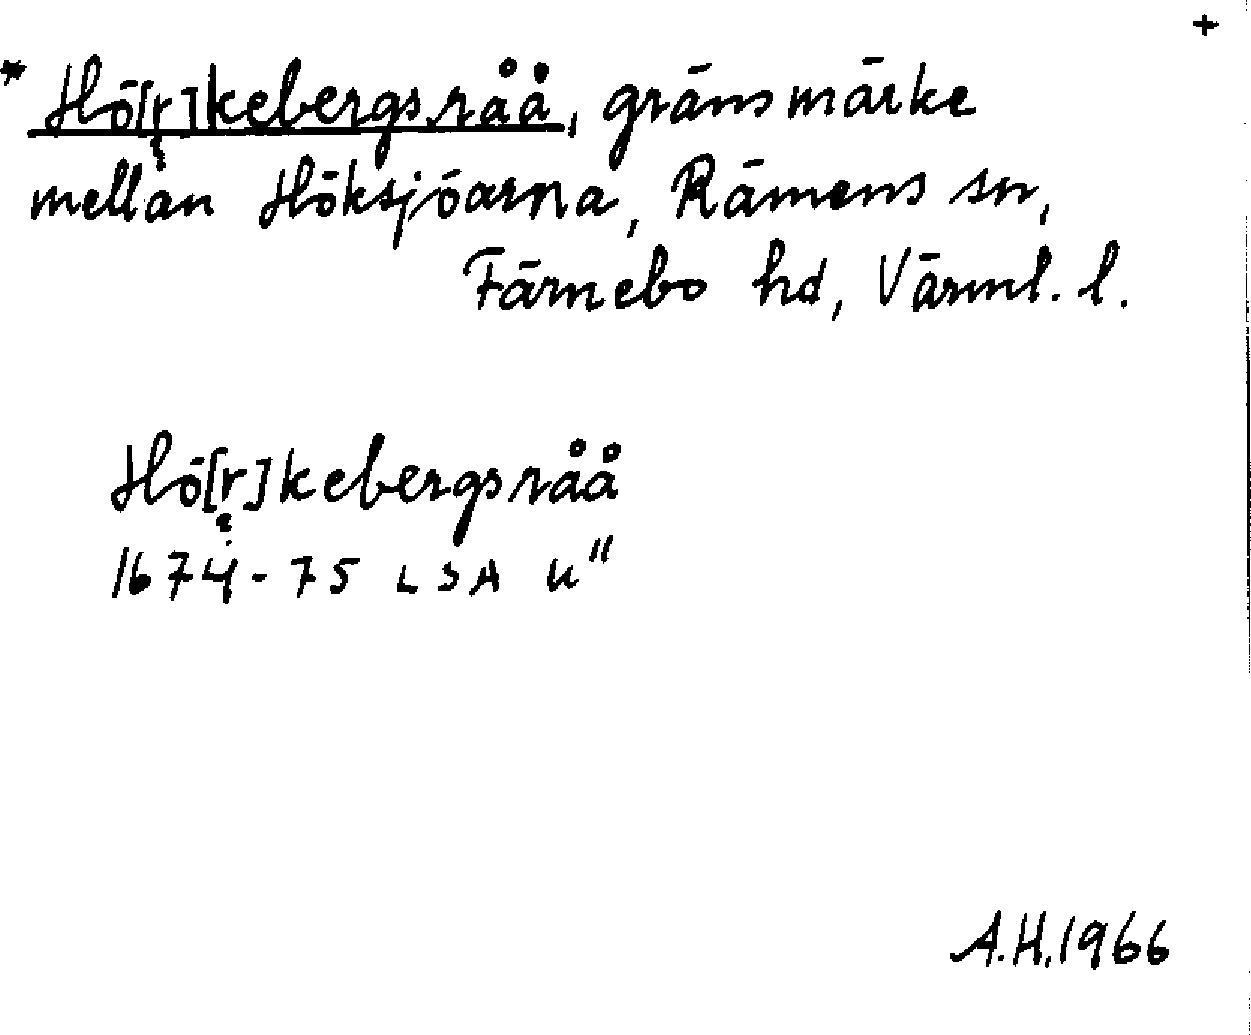 +
* Hö[r]kebergsråå, gränsmärke
mellan Höksjöarna, Rämens sn,
Färnebo hd, Värml. l.
Hö[r]kebergsråå
?
1674-75 LSA u"
A.H. 1966